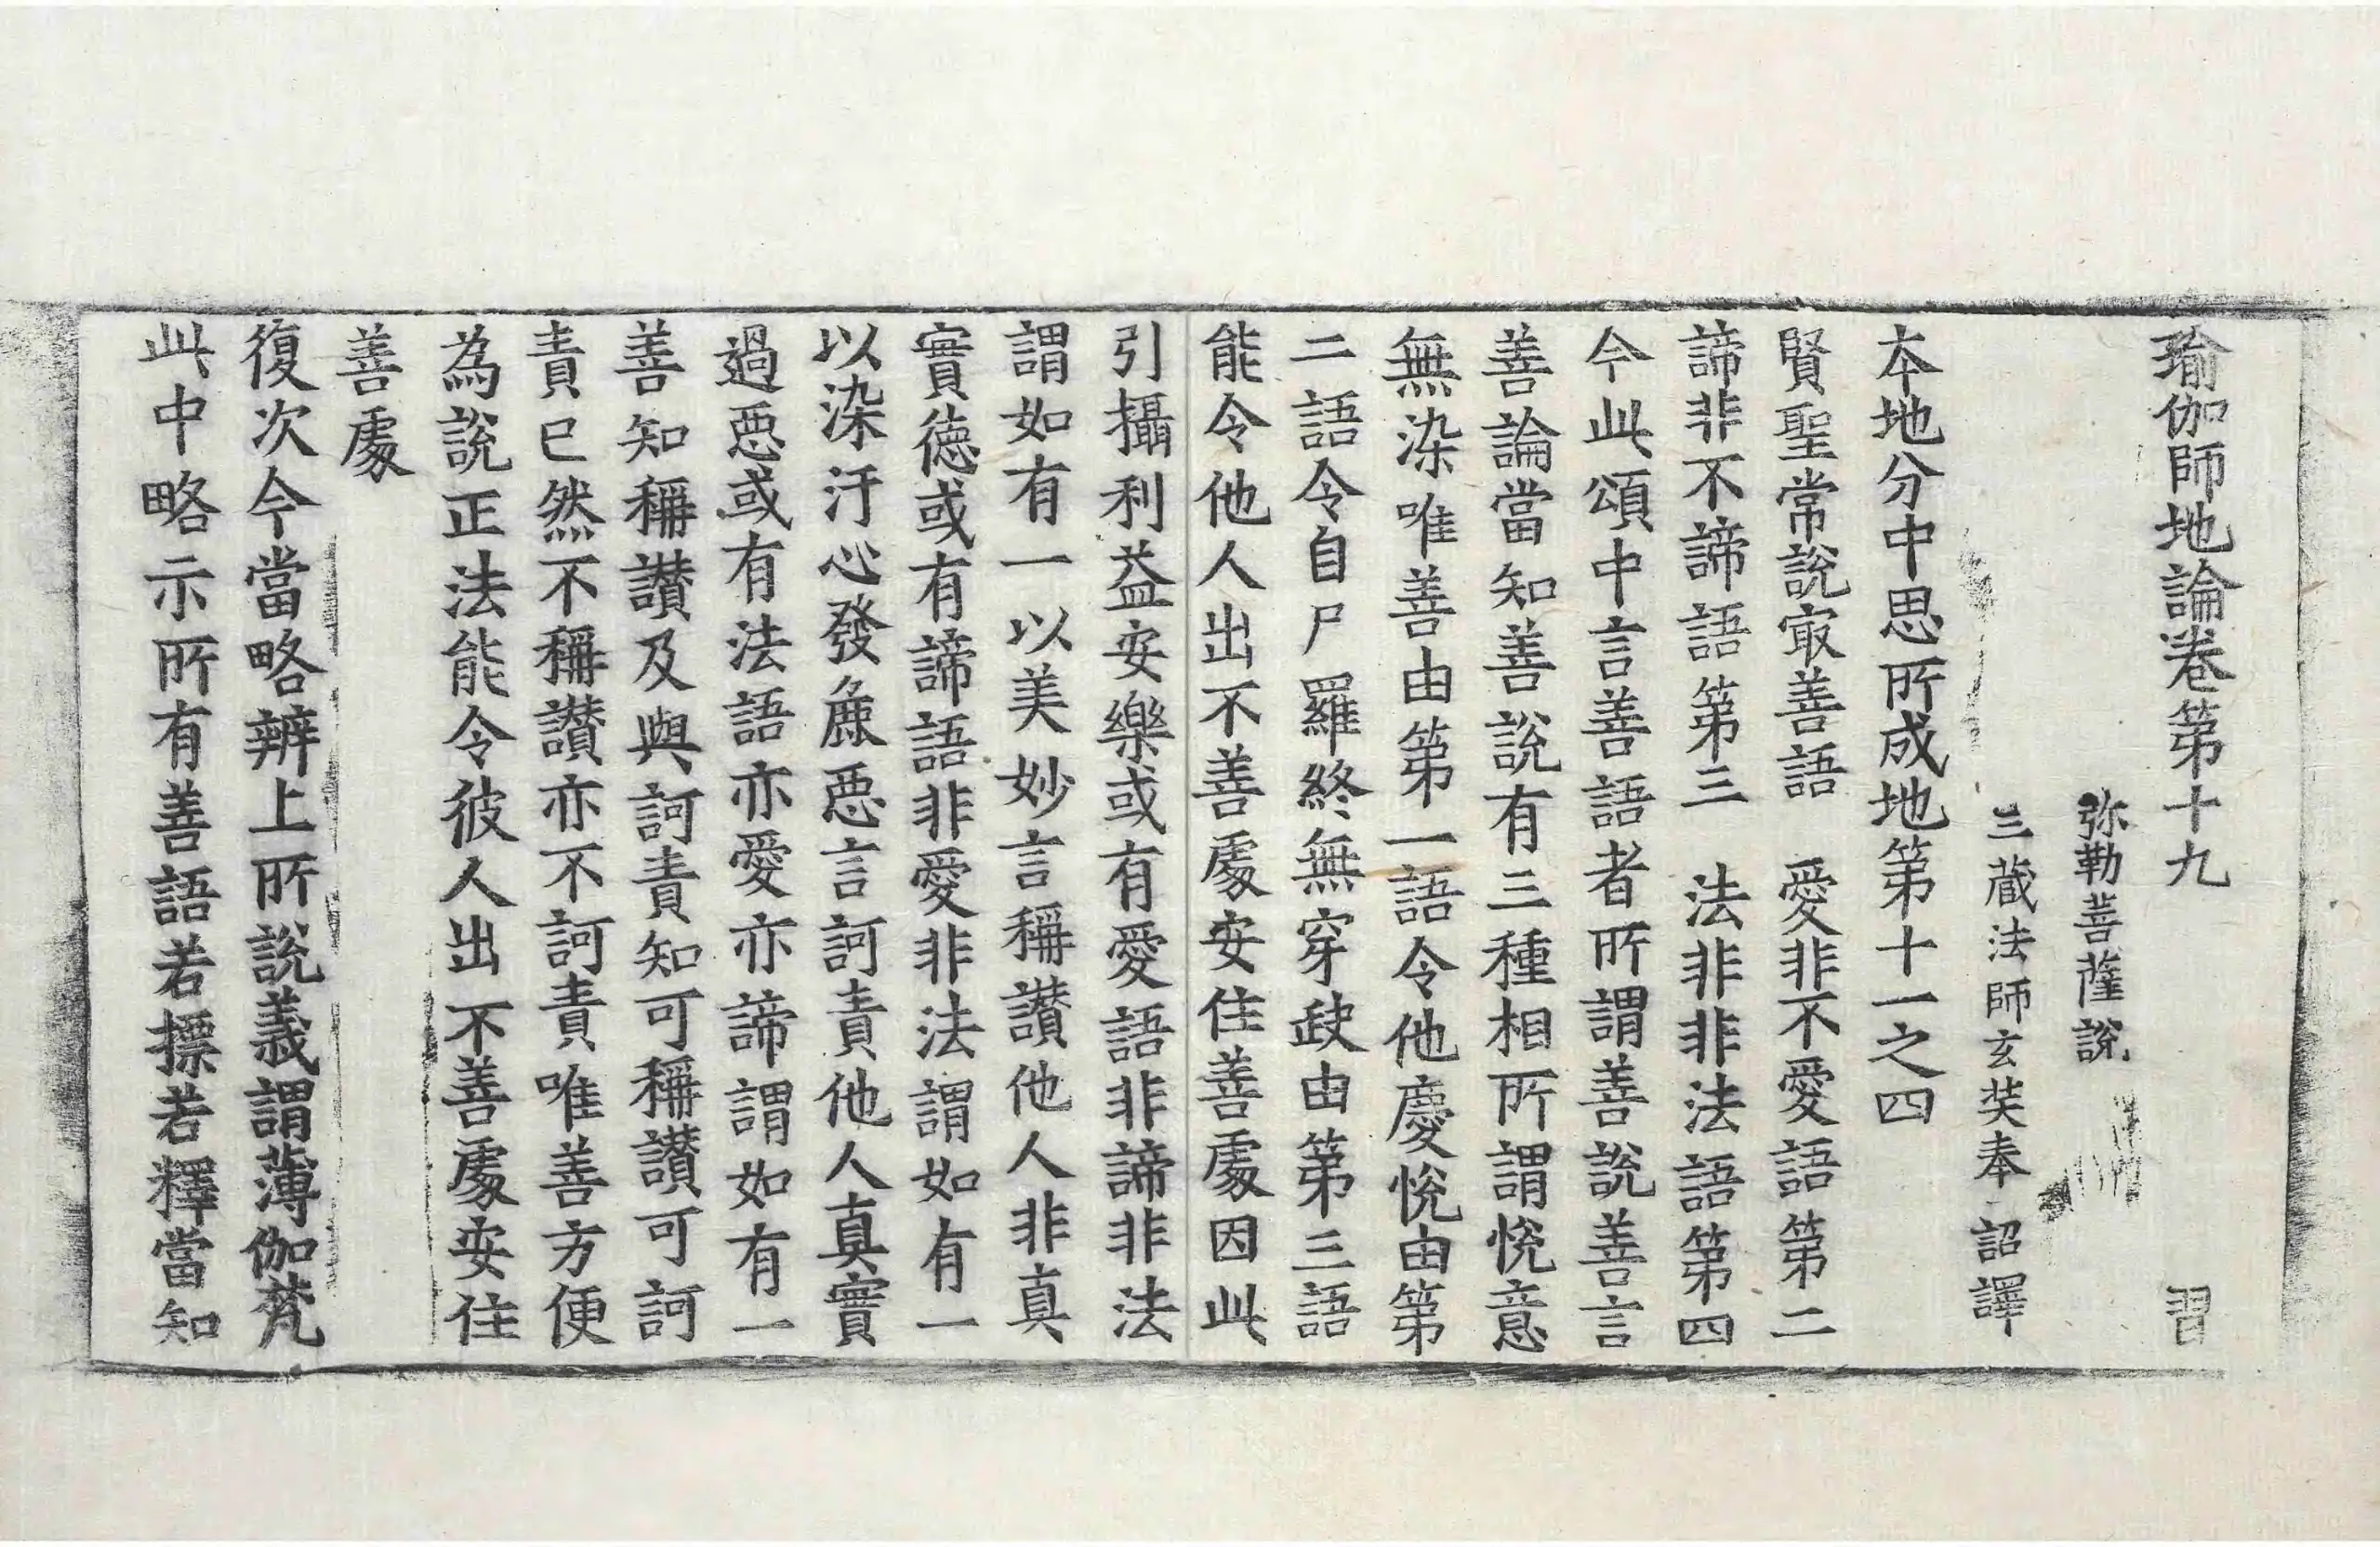 瑜伽師地論卷第十九 習
弥勒菩薩說
三蔵法師玄奘奉 詔譯
本地分中思所成地第十一之四
賢聖常說㝡善語 愛非不愛語第二
諦非不諦語第三 法非非法語第四
今此頌中言善語者所謂善說善言
善論當知善說有三種相所謂悅意
無染唯善由第一語令他慶悅由第
二語令自尸羅終無穿缺由第三語
能令他人出不善處安住善處因此
引攝利益安樂或有愛語非諦非法
謂如有一以美妙言稱讃他人非真
實德或有諦語非愛非法謂如有一
以染汙心發麁惡言訶責他人真實
過惡或有法語亦愛亦諦謂如有一
善知稱讃及與訶責知可稱讃可訶
責已然不稱讃亦不訶責唯善方便
為說正法能令彼人出不善處安住
善處
復次今當略辨上所說義謂薄伽梵
此中略示所有善語若摽若釋當知